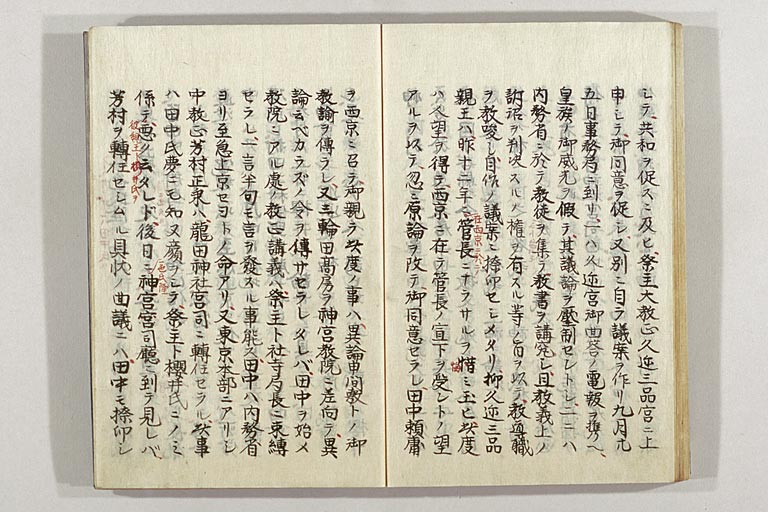 シテ共和ヲ促スニ及ヒ祭主大教正久迩三品宮ニ上
申シテ御同意ヲ促シ又別ニ自ラ議案ヲ作リ九月廿
五日事務局ニ到リ一ハ久迩宮御曲答ノ電報ヲ携ヘ
皇族ノ御威光ヲ假テ其議論ヲ壓制セントレ一ニハ
内務省ニ於テ教徒ヲ集テ教書ヲ講究シ且教義上ノ
訴詔ヲ判決スルノ權ヲ有スル等ノ旨ヲ以テ教導職
ヲ教唆シ自作ノ議案ニ捺印セシメタリ抑久迩三品
親王ハ昨十二年ヘ管長ニナラサルヲ惜ミ玉ヒ此度
ハ企望ヲ得テ西京ニ在テ管長ノ宣下ヲ受ントノ望
アルヲ以テ忽ニ原論ヲ改テ御同意セラレ田中頼庸
ヲ西京ニ召テ御親ラ此度ノ事ハ異論申間敷トノ御
教諭ヲ傳ラレ又三輪田高房ヲ神宮教院ニ差向テ異
論云ベカラズノ令ヲ傳サセラレタレバ田中ヲ始メ
教院ニアル處ノ教正講義ハ祭主ト社寺局長ニ束縛
セラレ一言半句モ言ヲ發スル事能ス田中ハ内務省
ヨリ至急上京セヨトノ命アリ又東京本部ニアリシ
中教正芳村正秉ハ龍田神社宮司ニ轉任セラル此事
ハ田中氏夢ニモ知ヌ顔ヲシテ祭主ト櫻井氏ニノミ
係テ悪ク云タレド後日ニ神宮宮司廳ニ到テ見レバ
芳村ヲ轉任セシムル具状ノ曲議ニハ田中モ捺印シ